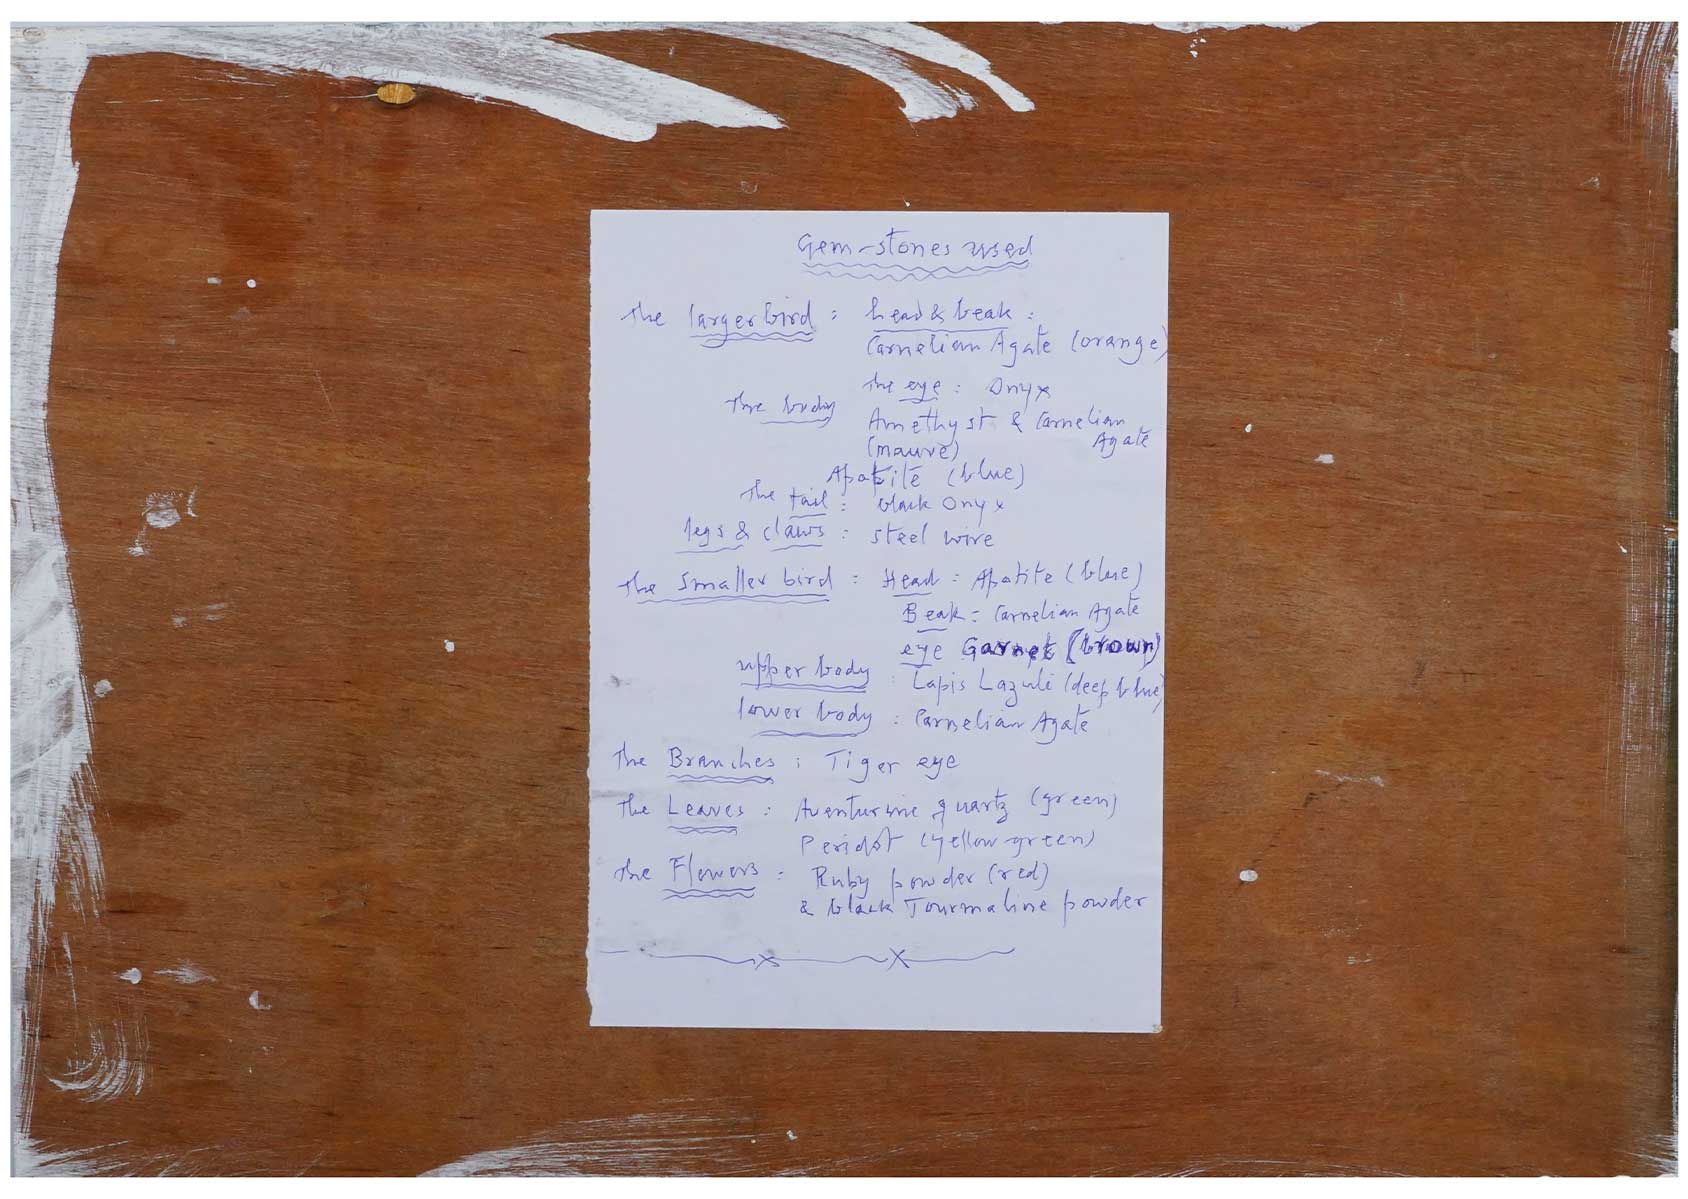 Gem-stones used
The larger bird : head & beak :
Carnelian Agate (orange)
The eye : Onyx
The body
Amethyst & Carnelian
(mauve) Agate
Apatite (blue)
The tail : black Onyx
legs & claws : steel wire
The Smaller bird : Head : Apatite (blue)
Beak : Carnelian Agate
eye Garnet (brown)
upper body : Lapis Lazuli (deep blue)
lower body : Carnelian Agate
The Branches : Tiger eye
The Leaves : Aventurine quartz (green)
Peridot (yellow green)
The Flowers : Ruby powder (red)
& black Tourmaline powder